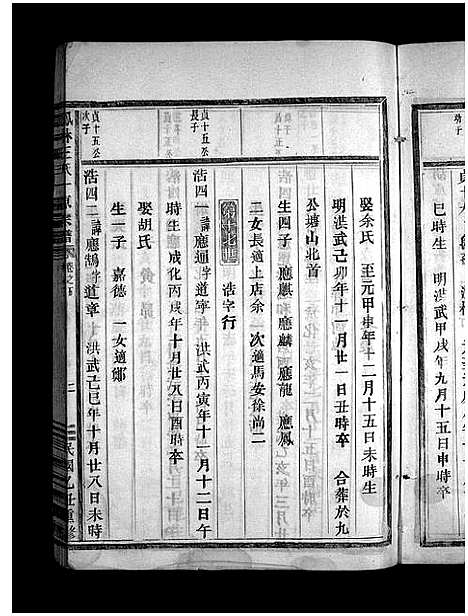 巳時生 明洪武甲戌年九月十五日申時
娶余氏 至元甲申年十二月十五日未時生
明洪武己卯年十一月廿一日丑時卒 合葬於九
公塘山北首
生四子 應麒 應麟 應龍 應鳳
二女長適上店余 一次適馬安徐尚二
浩字行
貞十五公長子
浩四一 諱應通字道寧 洪武丙寅年十一月十二日午
時生 成化丙戌年十月廿八日酉時卒
娶胡氏
生一子 嘉德 一女適鄭
貞十五公次子
浩四二 諱應鵠字道章 洪武己巳年十月廿八日未時
民國乙丑重修